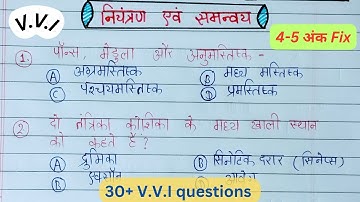 V.V.I
नियंत्रण एवं समन्वय
4-5 अंक Fix
1. पॉन्स, मेडुला और अनुमस्तिष्क -
A अग्रमस्तिष्क B मध्य मस्तिष्क
C पश्चयमस्तिष्क D प्रमस्तिष्क
2. दो तंत्रिका कोशिका के मध्य खाली स्थान
को कहते हैं?
A द्रुमिका B सिनेप्टिक दरार (सिनेप्स)
30+ V.V.I questions